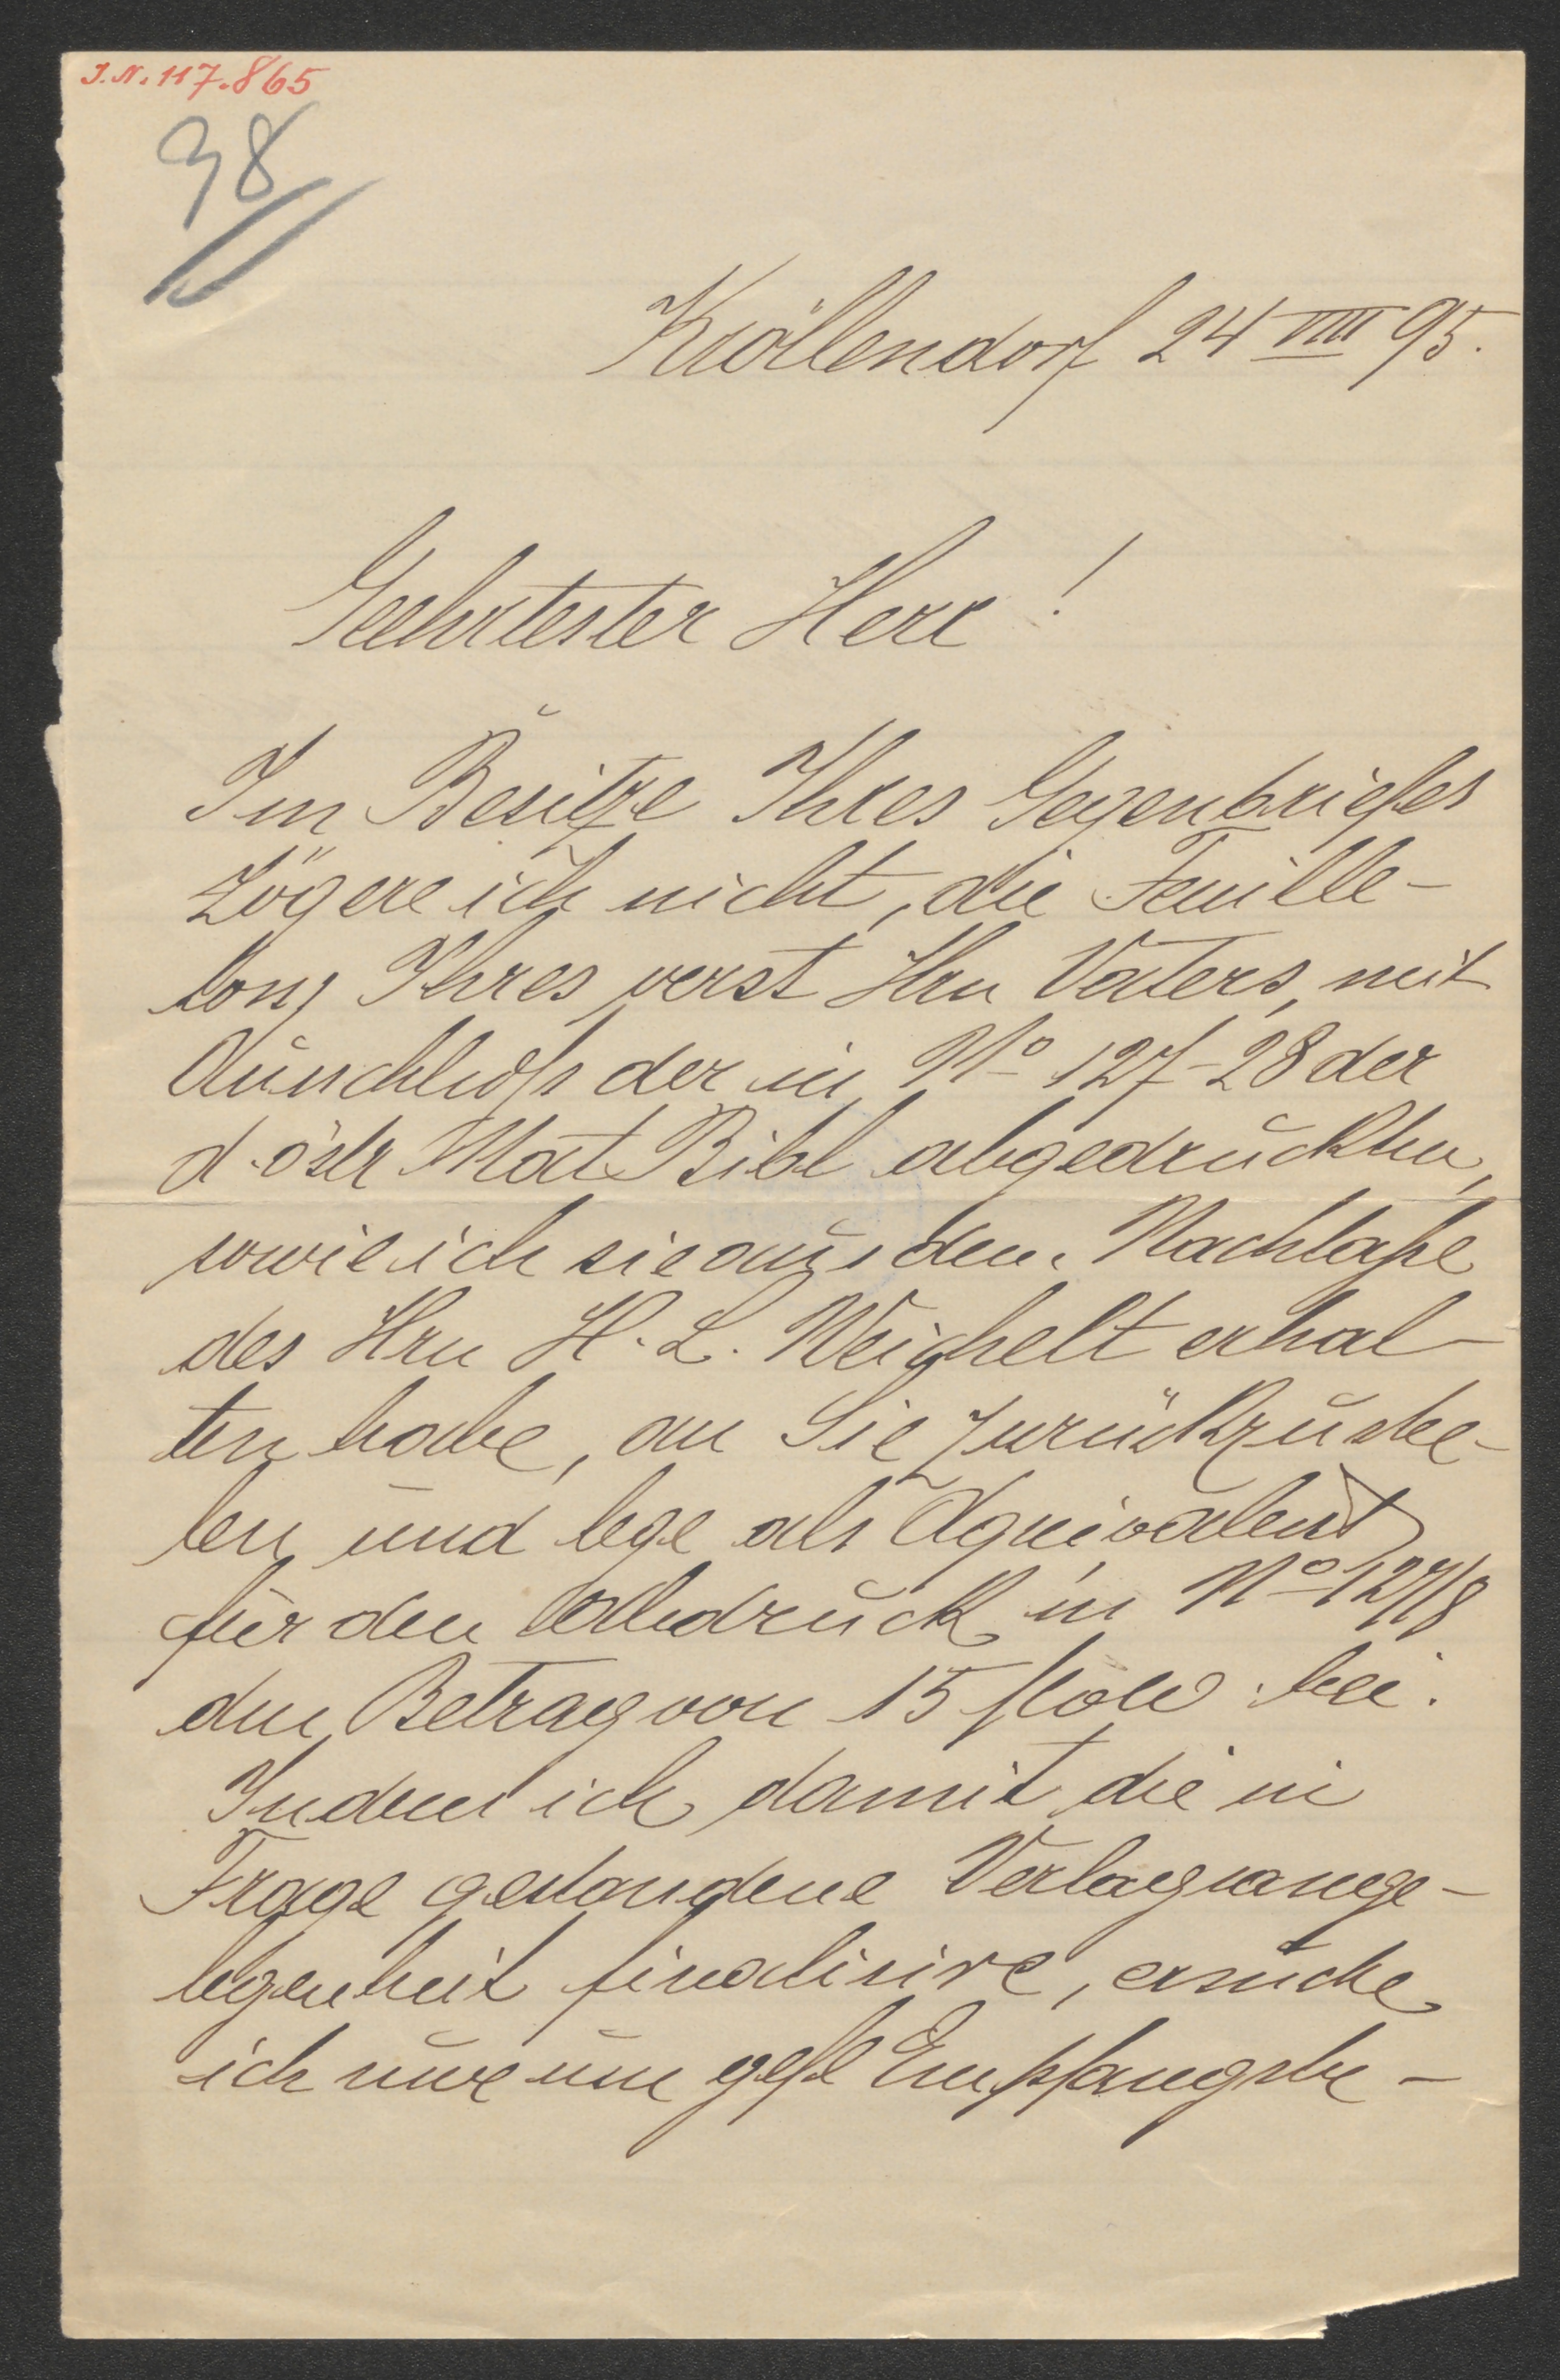 I. N. 117.865
98
Kröllendorf 24 VIII 95.
Geehrtester Herr!
Im Besitze Ihres Gegenbriefes
zögere ich nicht, die Feuille-
tons Ihres verst Hrn Vaters, mit
Ausschluß der in No 127-28 der
d. östr Nat Bibl abgedruckten,
sowie ich sie aus dem Nachlaße
des Hrn H. L. Weichelt erhal-
ten habe, an Sie zurückzuste-
len und lege als Äquivalent
für den Abdruck in No 127/8
den Betrag von 15 fl öW bei.
Indem ich damit die in
Frage gestandene Verlagsange-
legenheit finalisire, ersuche
ich nur um gefl Empfangsbe-